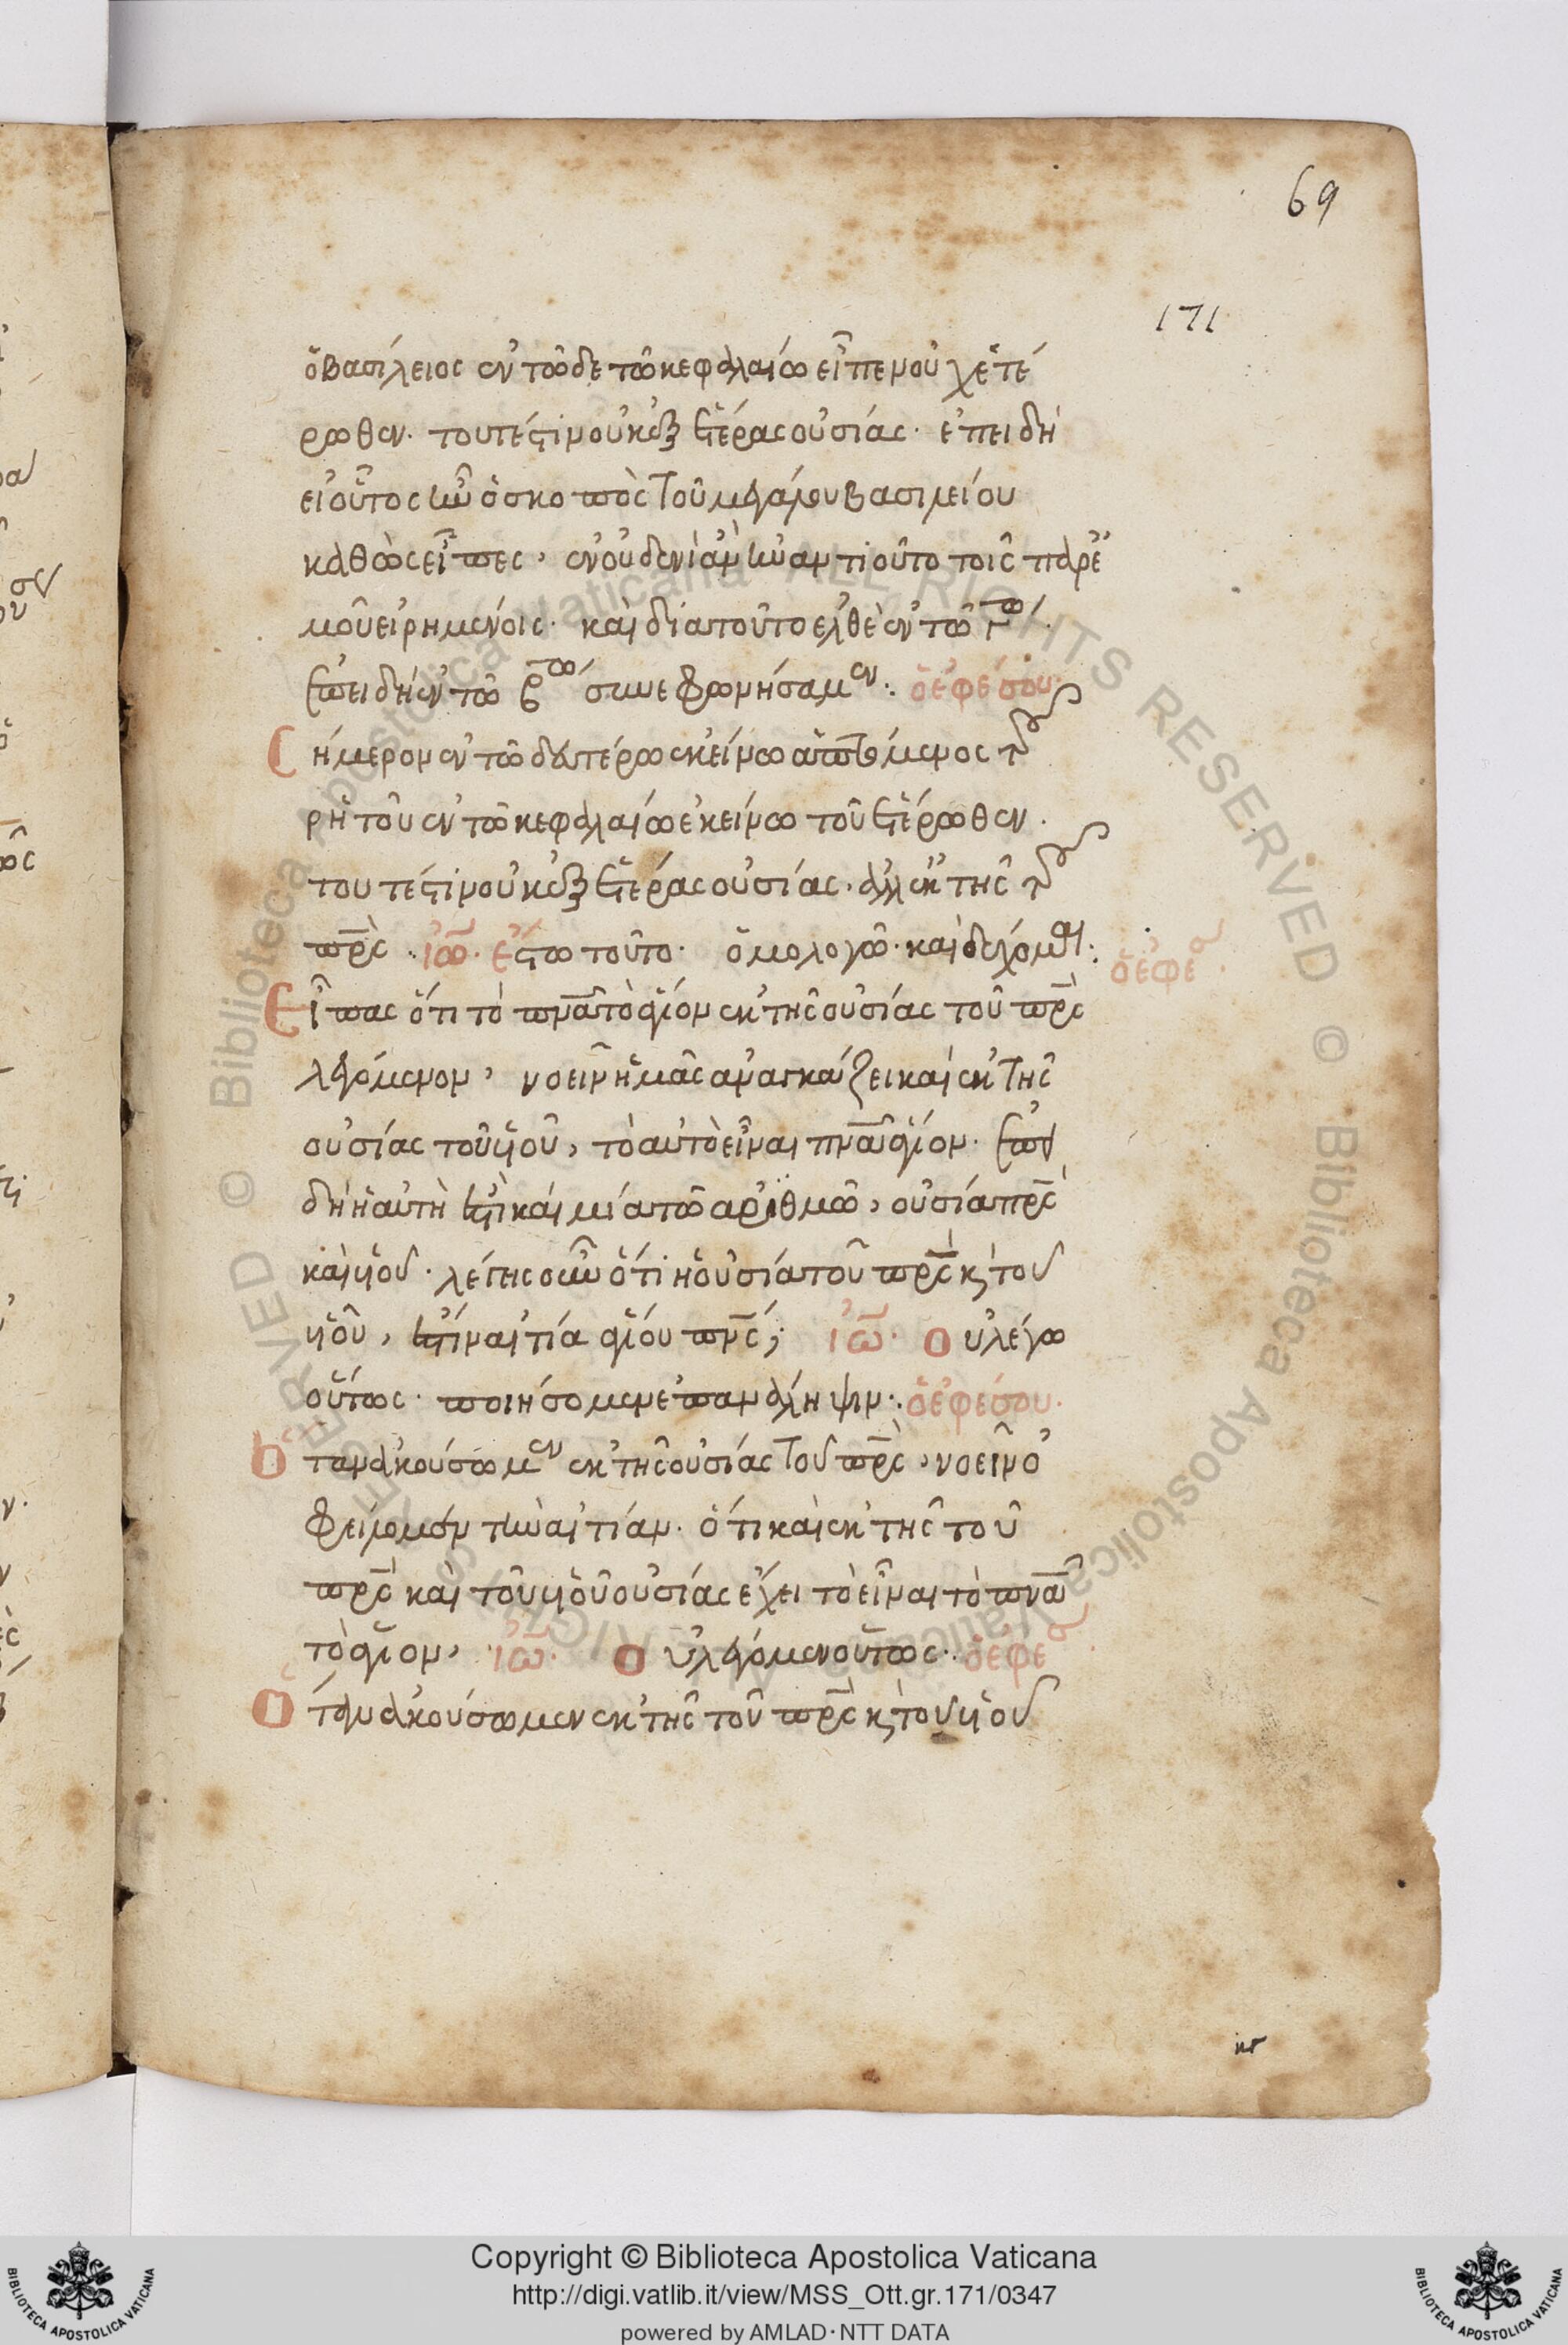 69
171
ὁ βασίλειος ἐν τῶδε τῶ κεφαλαίω εἶπεν οὐχ ἑτέ
ρωθεν. τουτέστιν οὐκ ἐξ ἑτέρας οὐσίας. ἐπειδὴ
εἰ οὗτος ἦν ὁ σκοπὸς τοῦ μεγάλου βασιλείου
καθὼς εἶπες, ἐν οὐδενὶ ἂν ἦν ἀντιοῦτο τοῖς παρ' ἐ
μοῦ εἰρημένοις. καὶ διὰ τοῦτο ἐλθὲ ἐν τῶ γ^τω
ἐπειδὴ ἐν τῶ β^τω συνεφωνήσαμεν: ὁ ἐφέσου.
Σήμερον ἐν τῶ δευτέρω ἐκείνω ἁπτόμενος τοῦ
ρητοῦ ἐν τῶ κεφαλαίω ἐκείνω τοῦ ἑτέρωθεν.
τουτέστιν οὐκ ἐξ ἑτέρας οὐσίας, ἀλλ' ἐκ τῆς τοῦ
πρς. ἰω. ἔστω τοῦτο. ὁμολογῶ. καὶ δέχομαι: ὁ ἐφέσ.
Εἶπας ὅτι τὸ πνα τὸ ἅγιον ἐκ τῆς οὐσίας τοῦ πρς
λεγόμενον, νοεῖν ἡμᾶς ἀναγκάζει καὶ ἐκ τῆς
οὐσίας τοῦ υἱοῦ, τὸ αὐτὸ εἶναι πνα ἅγιον. ἐπει
δὴ ἡ αὐτὴ ἐστὶ καὶ μία τῶ ἀριθμῶ, οὐσία πρς
καὶ υἱοῦ. λέγεις οὖν ὅτι ἡ οὐσία τοῦ πρς κ τοῦ
υἱοῦ, ἐστὶν αἰτία ἁγίου πνς; ἰω. οὐ λέγω
οὕτως. ποιήσομεν ἐπανάληψιν: ὁ ἐφέσου.
ὅταν ἀκούσωμεν ἐκ τῆς οὐσίας τοῦ πρς, νοεῖν ὀ
φείλομεν τὴν αἰτίαν. ὅτι καὶ ἐκ τῆς τοῦ
πρς καὶ τοῦ υἱοῦ οὐσίας ἔχει τὸ εἶναι τὸ πνα
τὸ ἅγιον, ἰω. οὐ λέγομεν οὕτως: ὁ ἐφέσ.
Ὅταν ἀκούσωμεν ἐκ τῆς τοῦ πρς κ τοῦ υἱοῦ
Copyright © Biblioteca Apostolica Vaticana
http://digi.vatlib.it/view/MSS_Ott.gr.171/0347
powered by AMLAD·NTT DATA
BIBLIOTECA APOSTOLICA VATICANA
BIBLIOTECA APOSTOLICA VATICANA